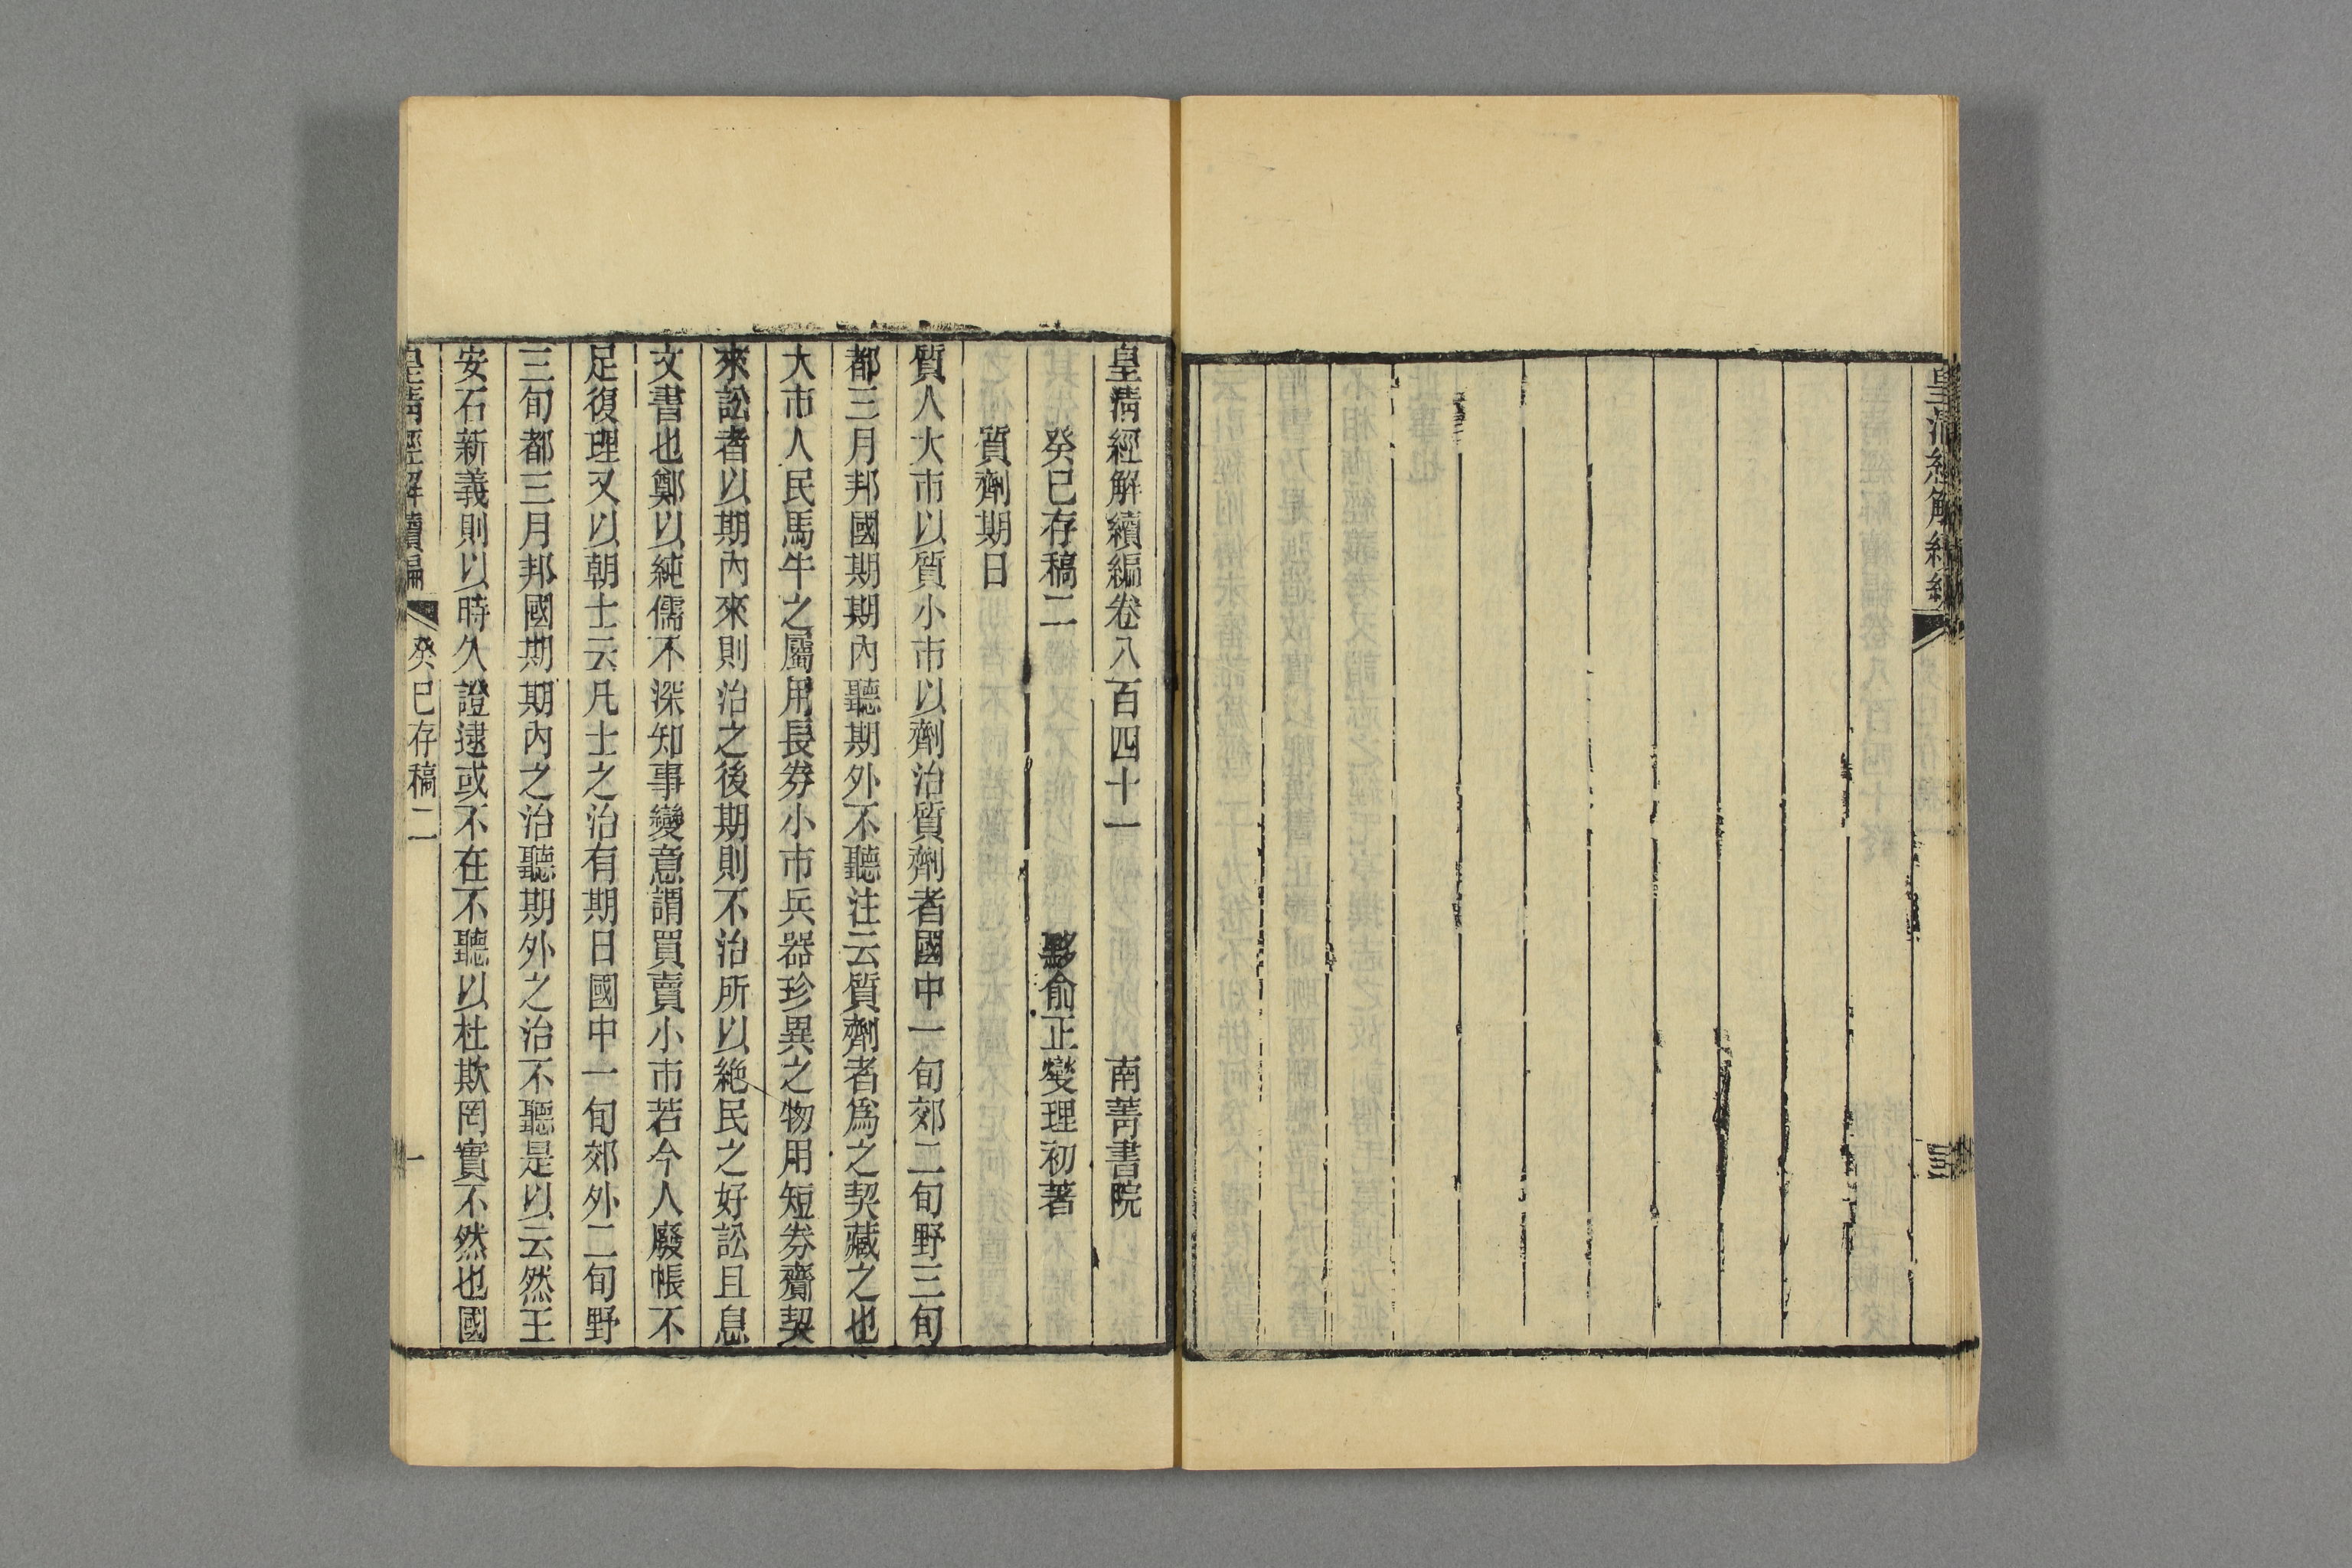 皇清經解續編
三
皇清經解續編卷八百四十一 南菁書院
癸巳存稿二 黟俞正燮理初著
質劑期日
質人大市以質小市以劑治質劑者國中一旬郊二旬野三旬
都三月邦國期期內聽期外不聽注云質劑者爲之契藏之也
大市人民馬牛之屬用長券小市兵器珍異之物用短券齎契
來訟者以期內來則治之後期則不治所以絶民之好訟且息
文書也鄭以純儒不深知事變意謂買賣小市若今人廢帳不
足復理又以朝士云凡士之治有期日國中一旬郊外二旬野
三旬都三月邦國期期內之治聽期外之治不聽是以云然王
安石新義則以時久證逮或不在不聽以杜欺罔實不然也國
皇清經解續編 癸巳存稿二 一